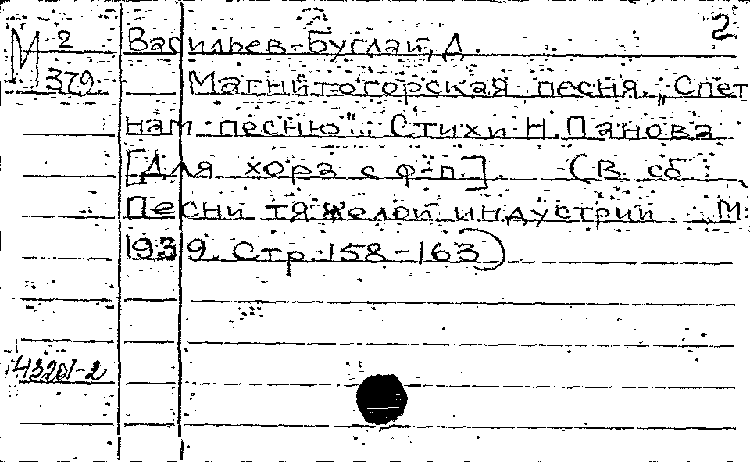 2
М 2
379
Васильев-Буглай, Д.
Магнитогорская песня. „Спет
нам песню". Стихи Н. Панова
[Для хора с ф-п.] (В сб.:
Песни тяжелой индустрии. М.
1939. Стр. 158-163)